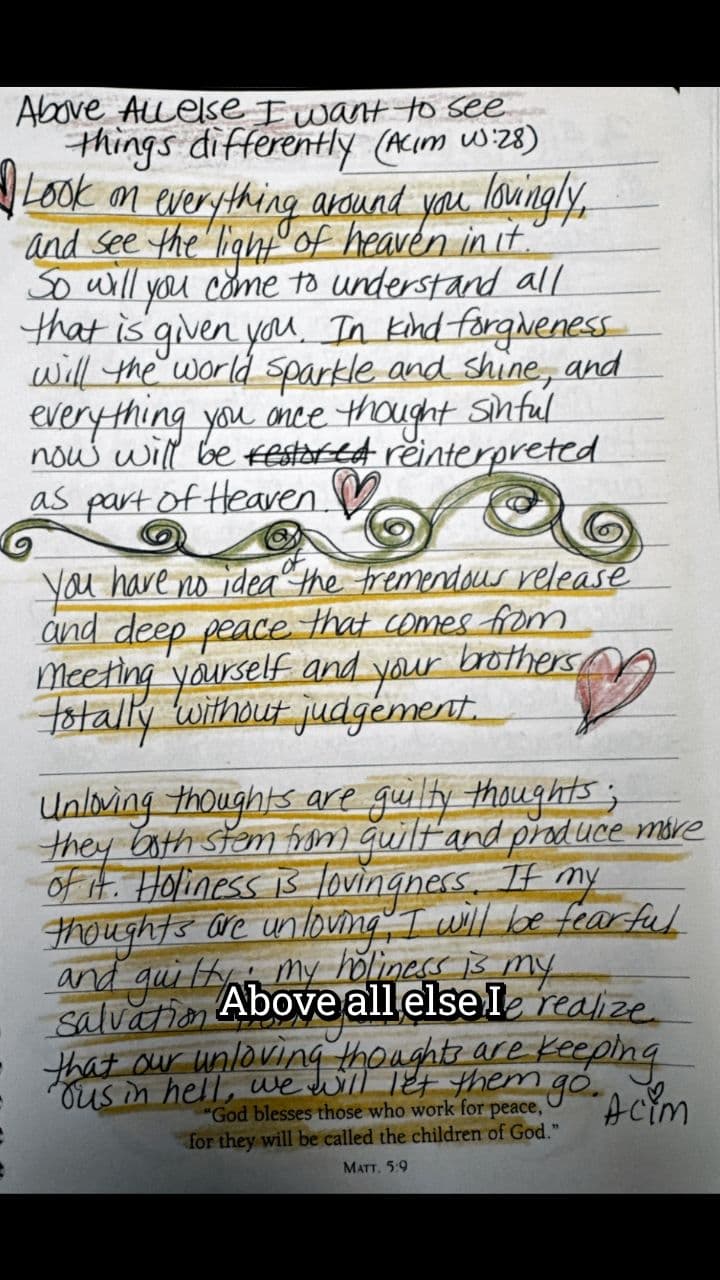 Above All else I want to see
things differently (ACIM W:28)
Look on everything around you lovingly,
and see the light of heaven in it.
So will you come to understand all
that is given you. In kind forgiveness
will the world sparkle and shine, and
everything you once thought sinful
now will be restored reinterpreted
as part of Heaven.
You have no idea of the tremendous release
and deep peace that comes from
meeting yourself and your brothers
totally without judgement.
Unloving thoughts are guilty thoughts;
they both stem from guilt and produce more
of it. Holiness is lovingness. If my
thoughts are unloving, I will be fearful
and guilty; my holiness is my
salvation realize
Above all else I
that our unloving thoughts are keeping
us in hell, we will let them go.
ACIM
"God blesses those who work for peace,
for they will be called the children of God."
MATT. 5:9